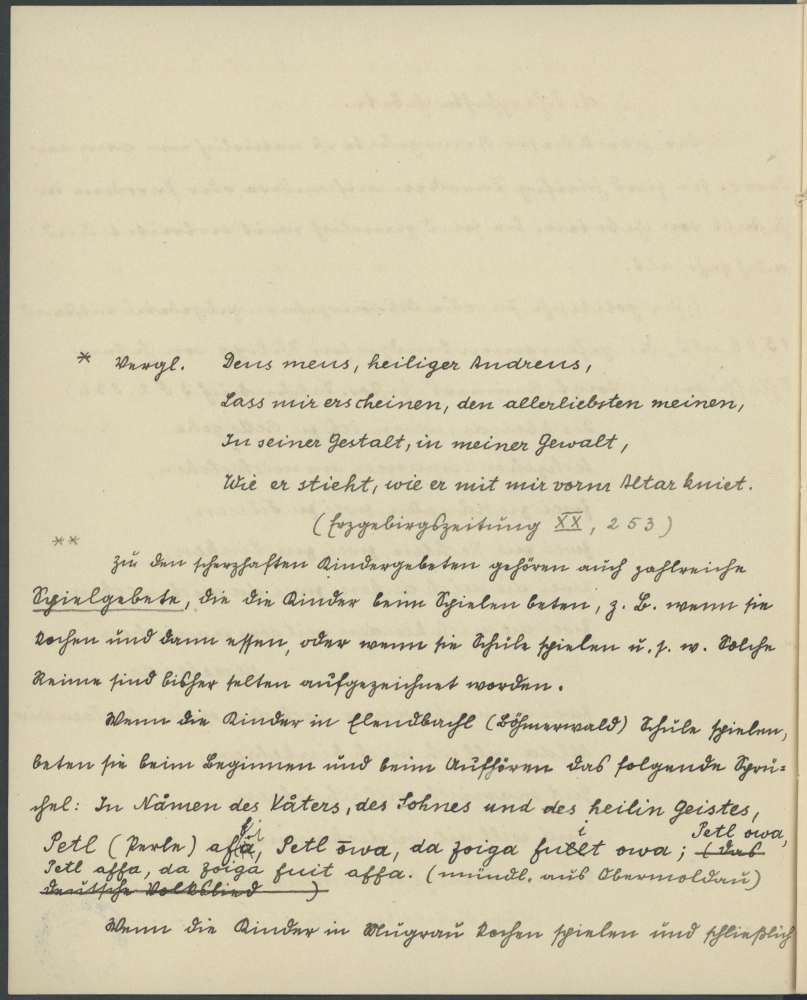 * Vergl. Deus meus, heiliger Andreus,
Lass mir erscheinen, den allerliebsten meinen,
In seiner Gestalt, in meiner Gewalt,
Wie er stieht, wie er mit mir vorm Altar kniet.
(Erzgebirgszeitung XX, 253)
**
Zu den scherzhaften Kindergebeten gehören auch zahlreiche
Spielgebete, die die Kinder beim Spielen beten, z. B. wenn sie
kochen und dann essen, oder wenn sie Schule spielen u. s. w. Solche
Reime sind bisher selten aufgezeichnet worden.
Wenn die Kinder in Elendbachl (Böhmerwald) Schule spielen,
beten sie beim Beginnen und beim Aufhören das folgende Sprü-
chel: In Nåmen des Våters, des Sohnes und des heilin Geistes,
Petl owa,
Petl (Perle) Petl ōwa, da zoiga owa; (das
Petl affa, da zoiga fuit affa. (mündl. aus Obermoldau)
deutsche Volkslied )
Wenn die Kinder in Mugrau kochen spielen und schließlich